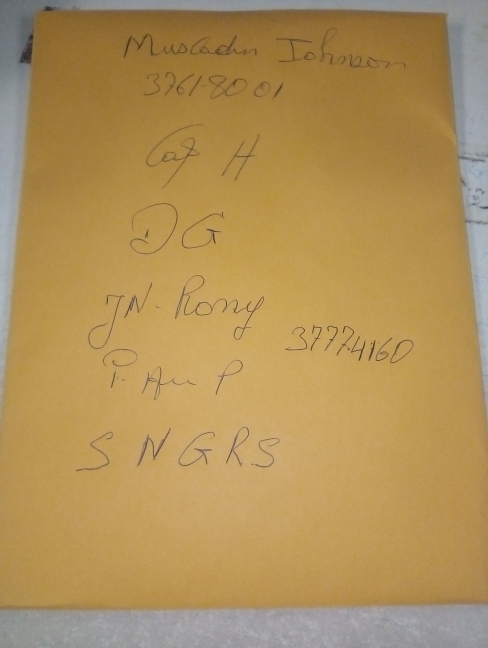 Muscadin Johnson
3761-8001
Cap H
DG
JN-Rony
37774160
P. Au P
S N G R S